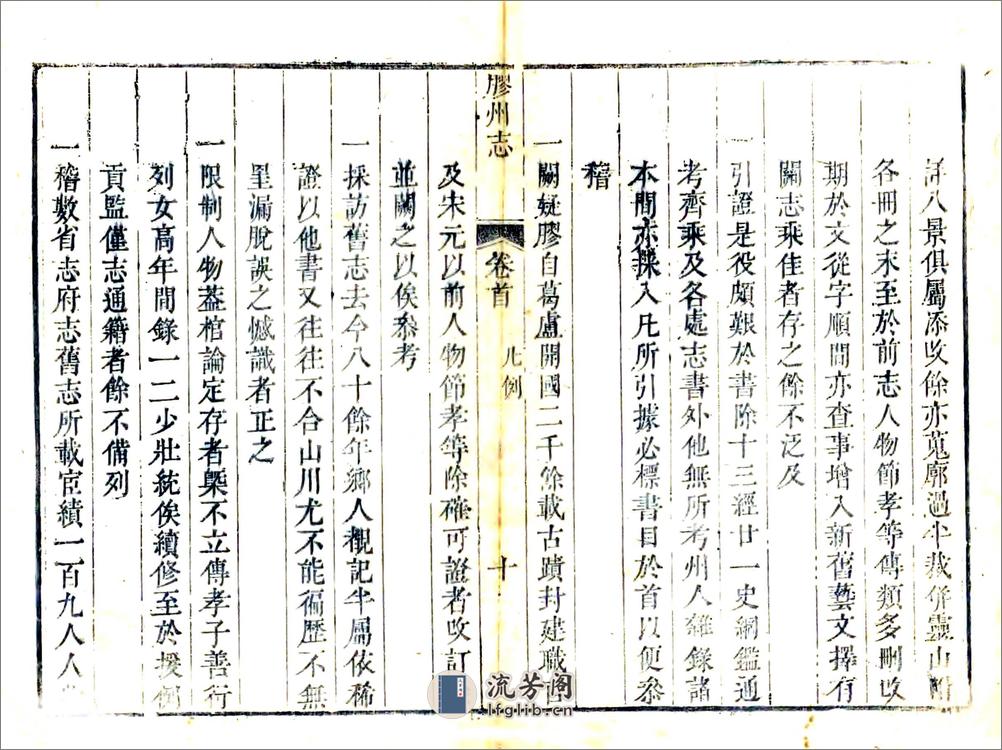 詳八景俱屬添改餘亦蒐廓過半裁併靈山附
各冊之末至於前志人物節孝等傳類多刪改
期於文從字順間亦查事增入新舊藝文擇有
關志乘佳者存之餘不泛及
一引證是役頗艱於書除十三經廿一史綱鑑通
考齊乘及各處志書外他無所考州人雜錄諸
本間亦採入凡所引據必標書目於首以便叅
稽
一闕疑膠自葛盧開國二千餘載古蹟封建職官
膠州志 卷首 凡例 十
及宋元以前人物節孝等除確可證者改訂
並闕之以俟叅考
一採訪舊志去今八十餘年鄉人覩記半屬依稀
證以他書又往往不合山川尤不能徧歷不無
罣漏脫誤之憾識者正之
一限制人物蓋棺論定存者槩不立傳孝子善行
列女高年間錄一二少壯統俟續修至於援例
貢監僅志通籍者餘不備列
一稽數省志府志舊志所載宦績一百九人人
流芳阁
lfglib.cn